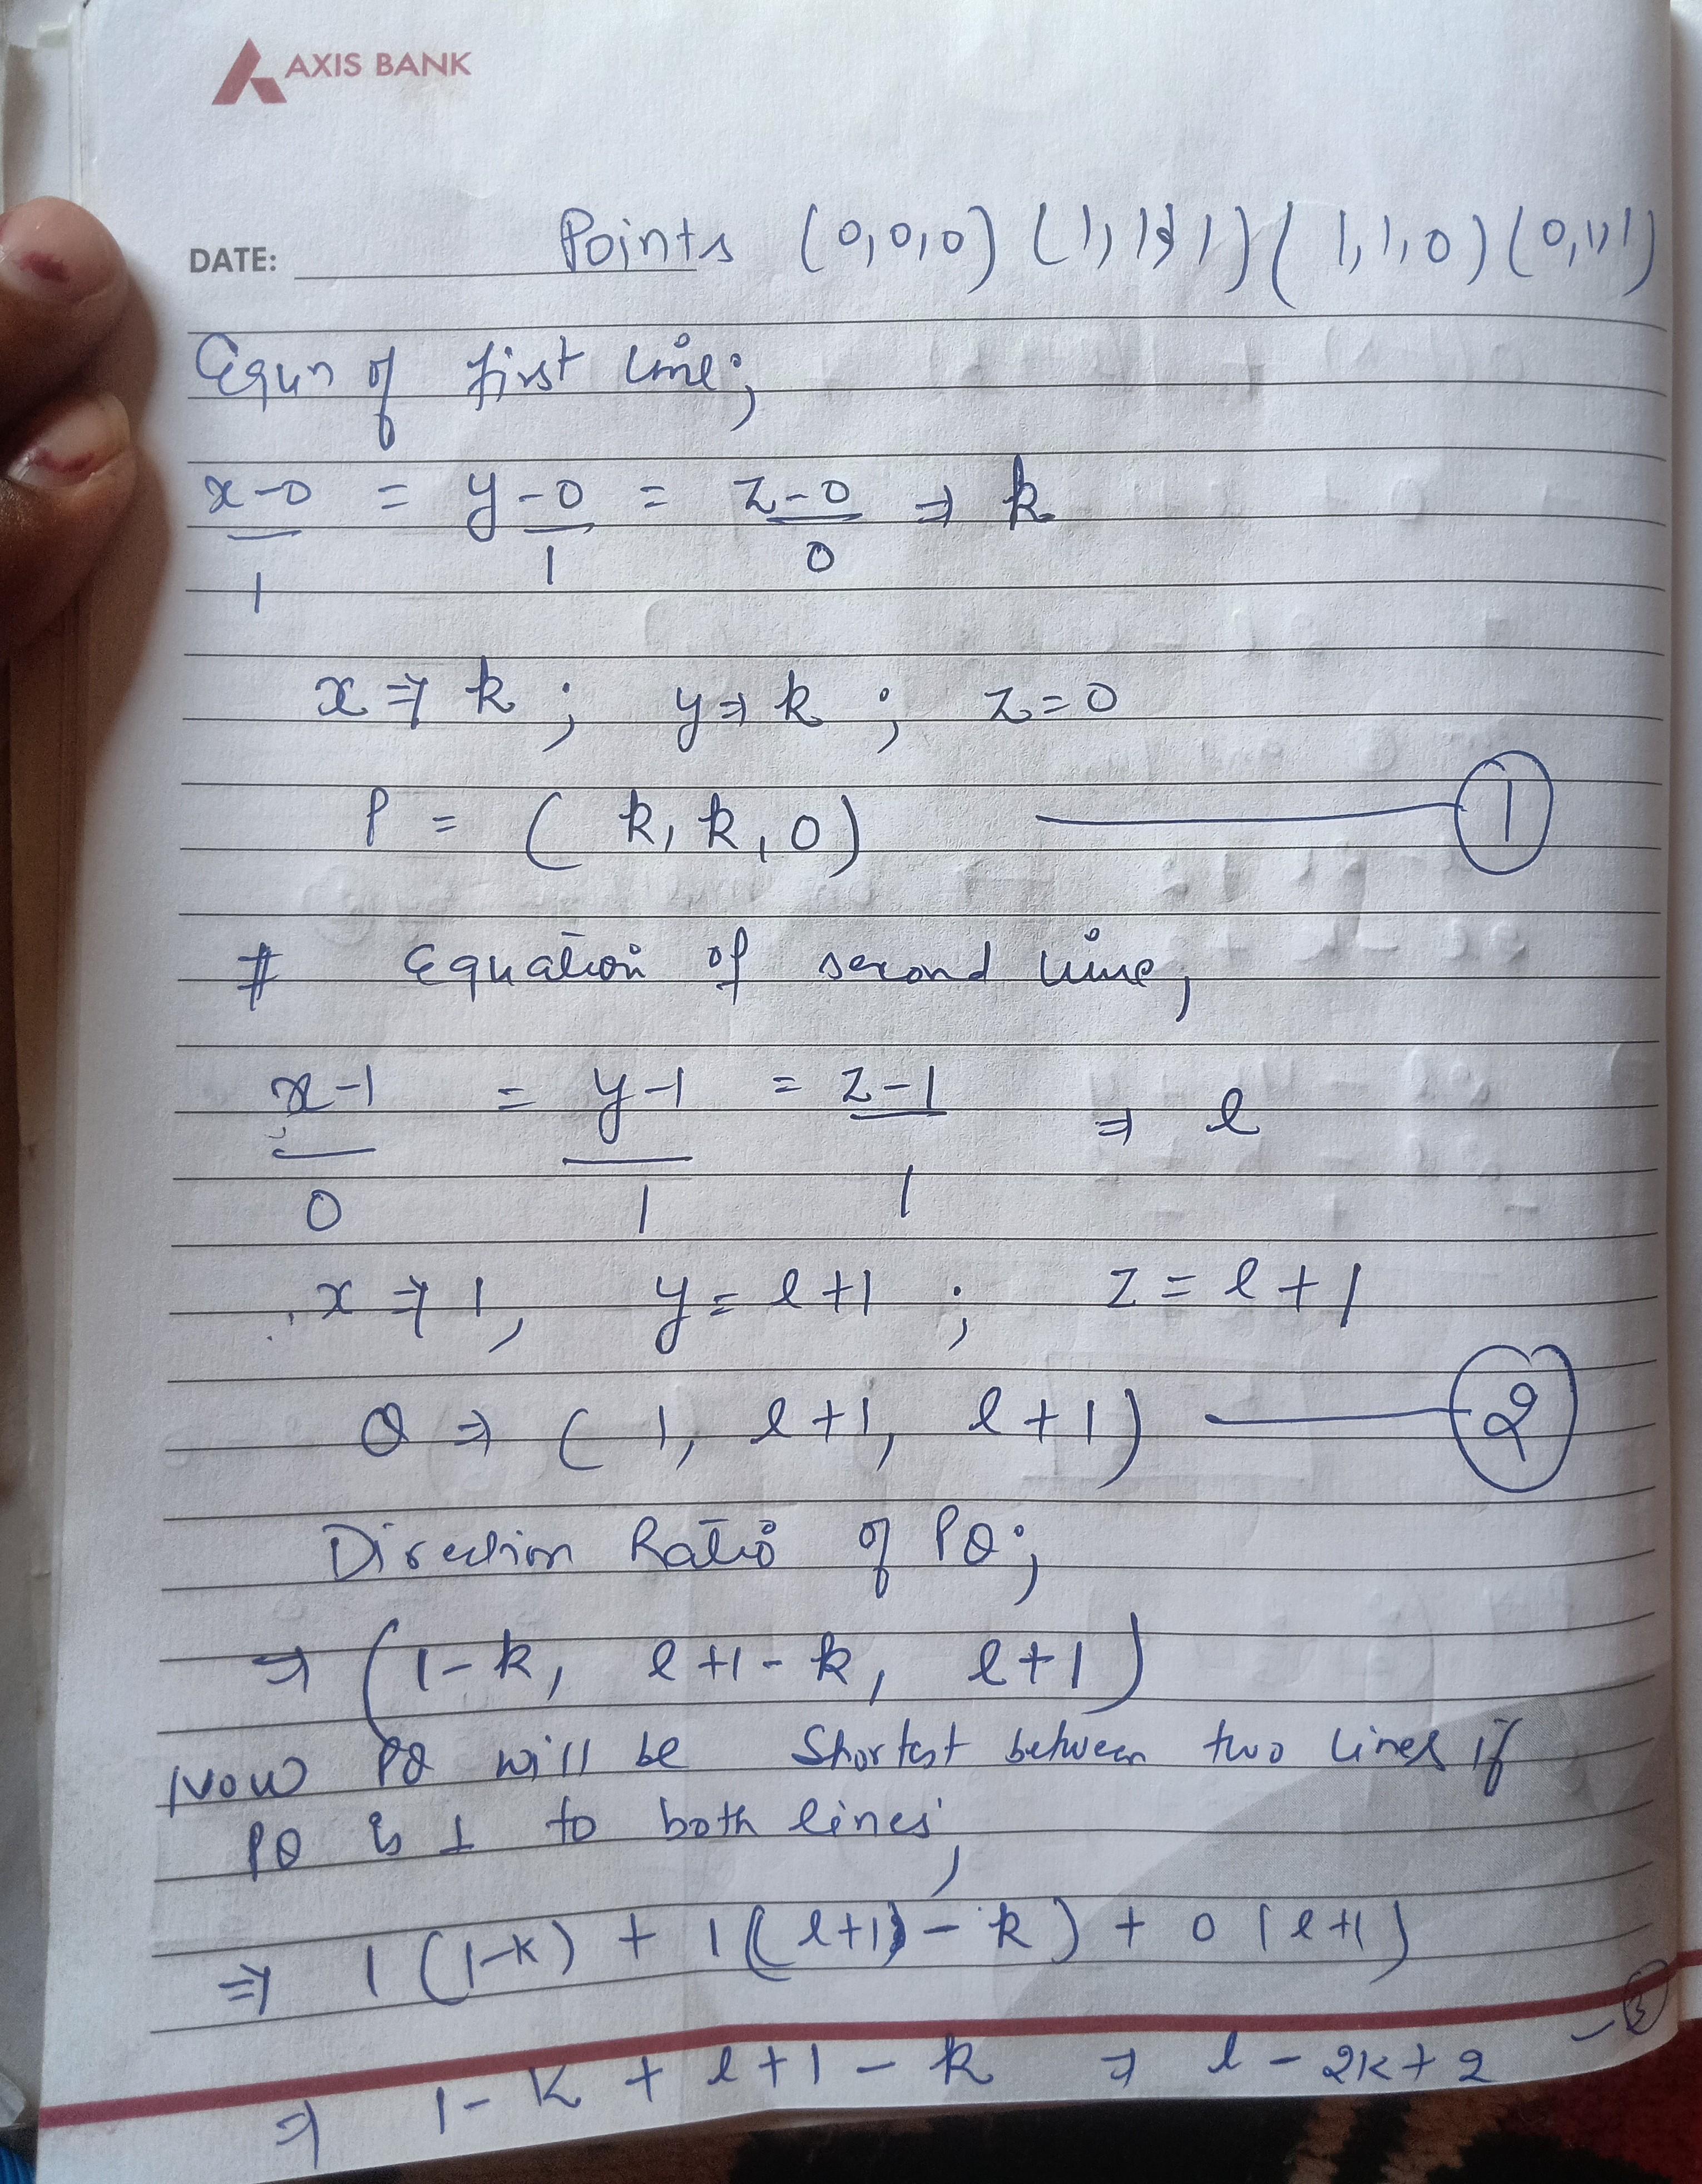 AXIS BANK
DATE: Points (0,0,0) (1,1,1) (1,1,0) (0,1,1)
Equn of first line;
x-0/1 = y-0/1 = z-0/0 ⇒ k
x ⇒ k ; y ⇒ k ; z = 0
P = ( k, k, 0) ——— 1
# Equation of second line,
x-1/0 = y-1/1 = z-1/1 ⇒ l
∴ x ⇒ 1, y = l+1 ; z = l+1
Q ⇒ ( 1, l+1, l+1) ——— 2
Direction Ratio of PQ;
⇒ (1-k, l+1-k, l+1)
Now PQ will be Shortest between two lines if
PQ is ⊥ to both lines,
⇒ 1(1-k) + 1((l+1)-k) + 0(l+1)
⇒ 1-k + l+1-k ⇒ l-2k+2 - 3